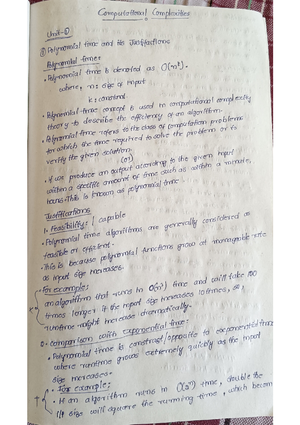 Computational Complexities
Unit-I
① Polynomial time and its Justifications
Polynomial time:
• Polynomial time is denoted as O(nᵏ).
where, n = size of input
k = constant
• Polynomial time concept is used in computational complexity
theory to describe the efficiency of an algorithm.
• Polynomial time refers to the class of computation problems
for which the time required to solve the problem or to
verify the given solution.
(or)
• If we produce an output according to the given input
within a specific amount of time such as within a minute,
hours. This is known as polynomial time.
Justifications
1. Feasibility: | capable
• Polynomial time algorithms are generally considered as
feasible or efficient.
• This is because polynomial functions grow at manageable rate
as input size increases.
For example:
an algorithm that runs in O(n²) time and will take 100
times longer if the input size increases 10 times,
runtime might increase dramatically.
2. comparison with exponential time:
• Polynomial time is contrast/opposite to exponential time
where runtime grows extremely quickly as the input
size increases.
• For example:
• If an algorithm runs in O(2ⁿ) time, double the
size will square the running time, which becom